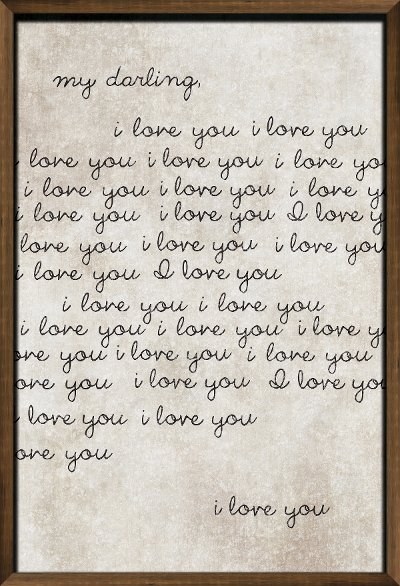 my darling,
i love you i love you
love you i love you i love yo
i love you i love you i love y
i love you i love you I love y
love you i love you i love you
i love you I love you
i love you i love you
i love you i love you i love y
ove you i love you i love you
ove you i love you I love you
love you i love you
ove you
i love you